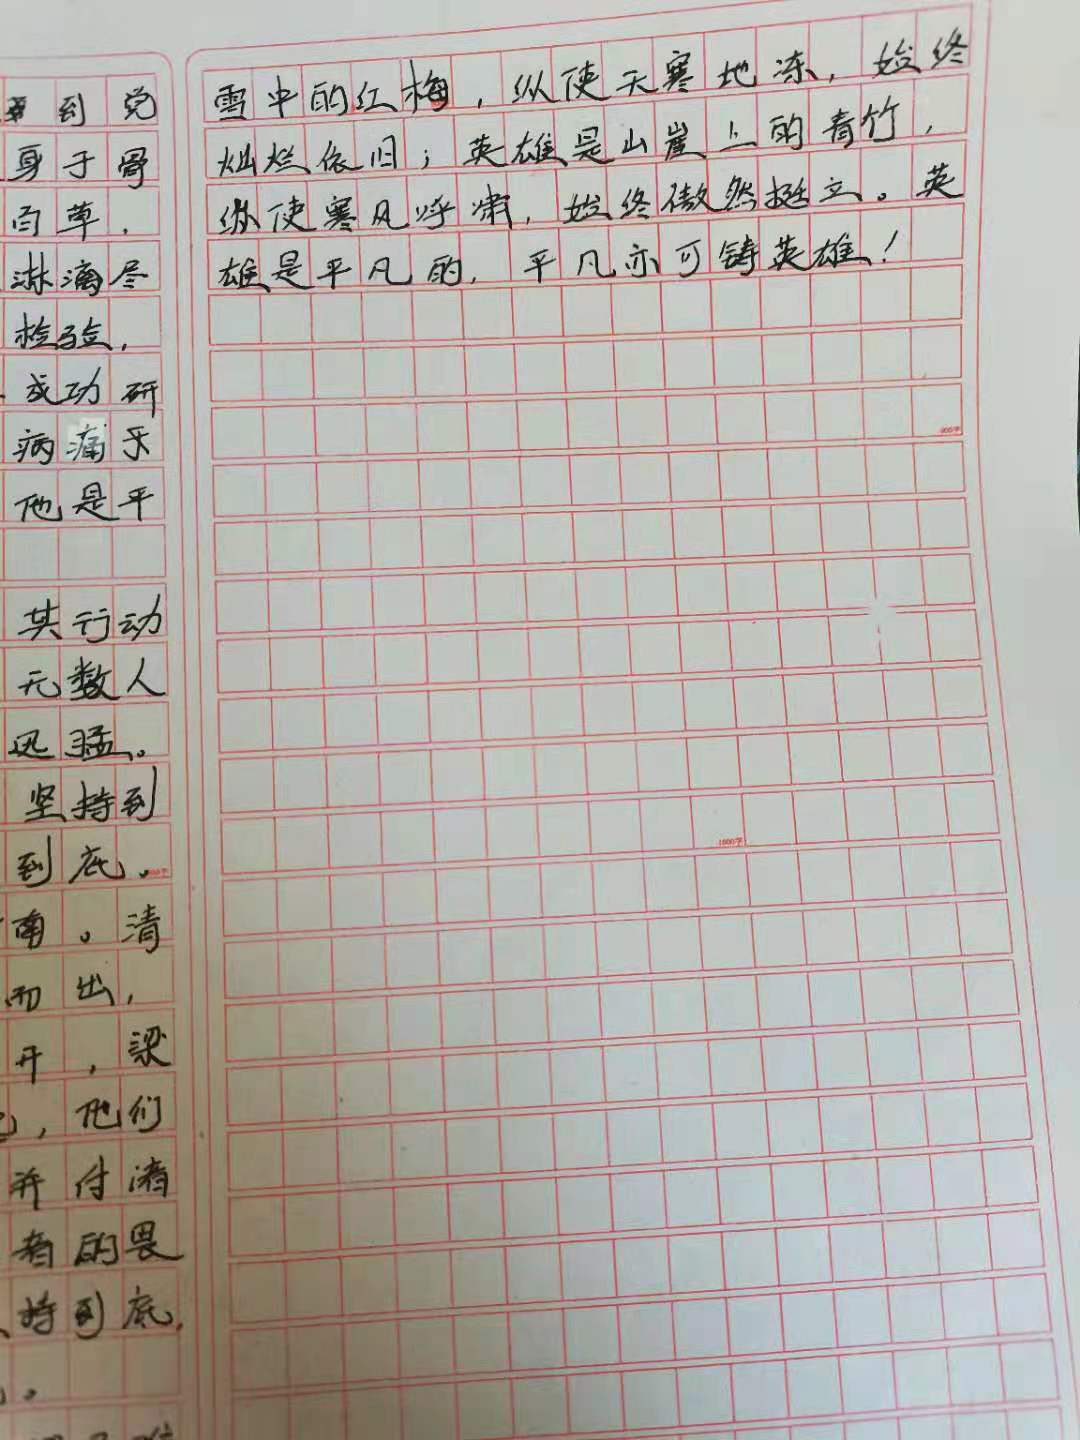 到党
身于骨
百草，
淋漓尽
检验，
成功研
病痛乐
他是平
其行动
无数人
迅猛。
坚持到
到底。
南。清
而出，
开，梁
，他们
并付诸
者的畏
持到底，
。
雪中的红梅，纵使天寒地冻，始终
灿烂依旧；英雄是山崖上的青竹，
纵使寒风呼啸，始终傲然挺立。英
雄是平凡的，平凡亦可铸英雄！
900字
1000字